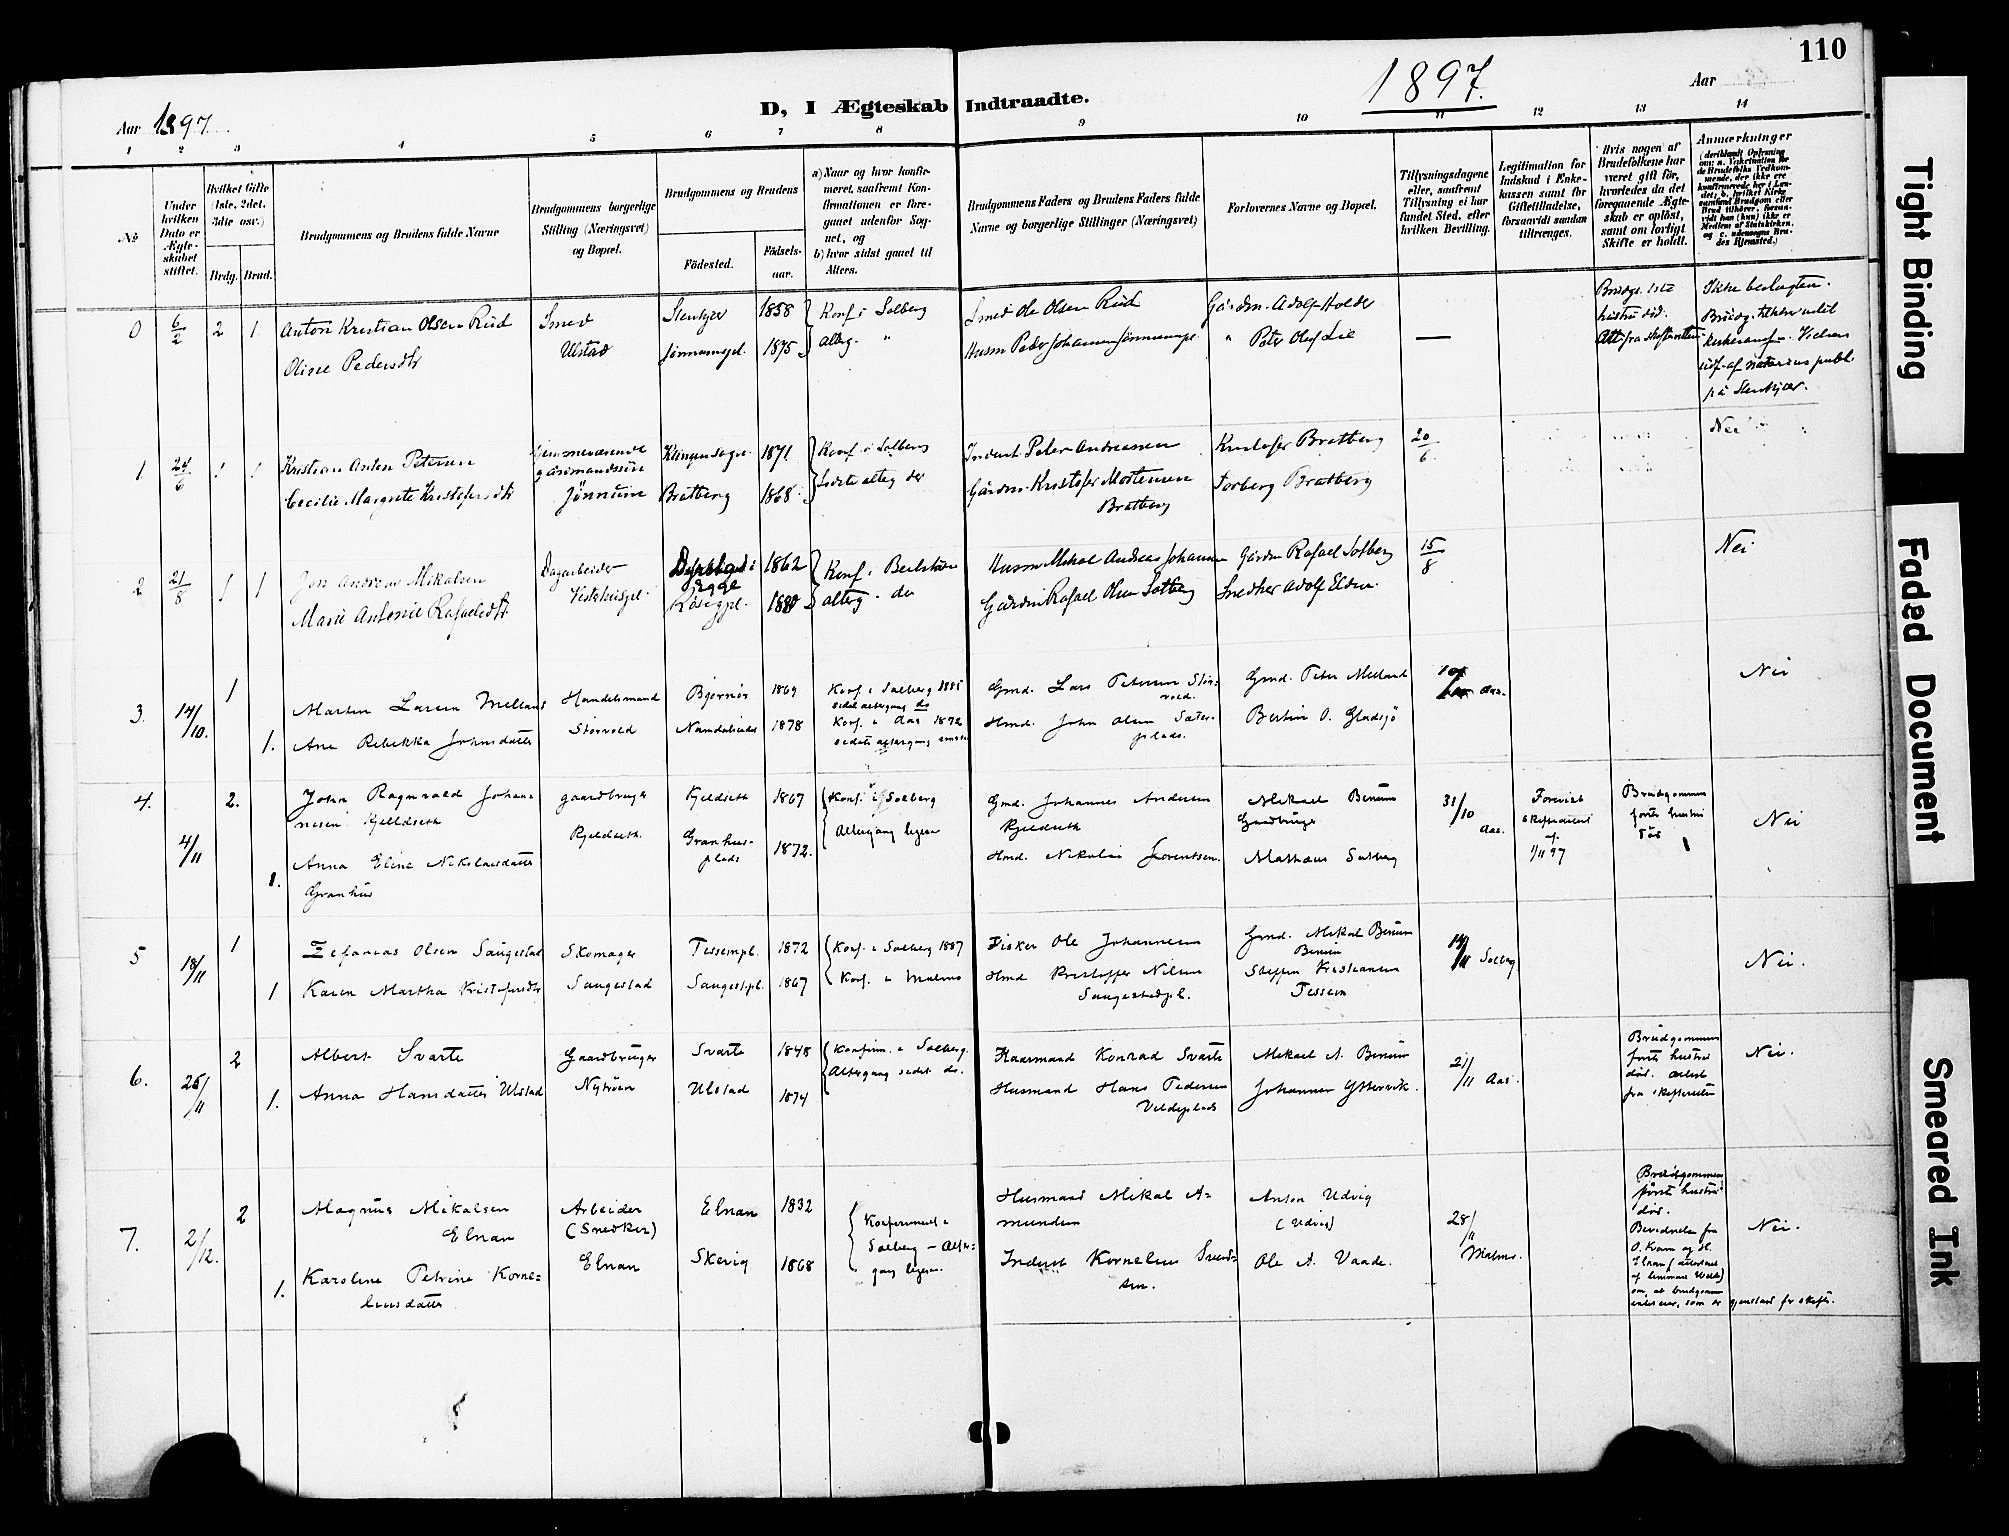 110
D, I Ægteskab Indtraadte.
1897.
Aar
Aar 1897.
1 2 3 4 5 6 7 8 9 10 11 12 13 14
No
Under hvilken Dato er Ægteskabet stiftet.
Hvilket Gifte (1ste, 2det, 3die osv.)
Brdg. Brud.
Brudgommens og Brudens fulde Navne
Brudgommens borgerlige Stilling (Næringsvei) og Bopæl.
Brudgommens og Brudens
Fødested.
Fødselsaar.
a) Naar og hvor konfirmeret, saafremt Konfirmationen er foregaaet udenfor Sognet, og
b) hvor sidst gaaet til Alters.
Brudgommens Faders og Brudens Faders fulde Navne og borgerlige Stillinger (Næringsvei)
Forlovernes Navne og Bopæl.
Tillysningsdagene eller, saafremt Tillysning ei har fundet Sted, efter hvilken Bevilling.
Legitimation for Indskud i Enkekassen samt for Giftetilladelse, forsaavidt saadan tiltrænges.
Hvis nogen af Brudefolkene har været gift før, hvorledes da det foregaaende Ægteskab er opløst, samt om lovligt Skifte er holdt.
Anmærkninger
0 6/2 2 1
Anton Kristian Olsen Rüd
Oline Pedersdtr
Smed
Ulstad
Stenkjær 1858
Jønnumspl. 1875
Konf i Solberg
alterg. "
Smed Ole Olsen Rüd
Husm Peder Johansen Jønnumspl
Gårdm. Adolf Holdr
" Peter Oluf Lie
—
Brudgs. 1ste
hustru död.
Att fra skifteretten
Ikke beslægten.
Brudg. tilhører udel
på Stenkjær.
1 24/6 1 1
Kristian Anton Petersen
Cecilie Margrete Kristofersdtr
Hjemmeværende
gårdmandssön
Jønnum
Klingensogn 1871
Bratberg 1868
Konf i Solberg
Sidste alterg der
Inderst Peter Andreassen
Gårdm. Kristofer Mortensen
Bratberg
Kristofer Bratberg
Torberg Bratberg
20/6
Nei
2 21/8 1 1
Jon Andreas Mikalsen
Marie Antonie Rafaelsdtr
Dagarbeider
Vistehuspl.
Egge 1862
Konf i Beitstaden
alterg. do
Husm Mikal Andreas Johansen
Gårdm Rafael Olsen Solberg
Gårdm Rafael Solberg
Snedker Adolf Elden.
15/8
Nei
3. 14/10. 1 1.
Martin Larsen Melland
Ane Rebekka Johnsdatter
Handelsmand
Storvold
Bjørnør 1869
Namdalseidet 1878
Konf. i Solberg 1885
sidst altergang do
Konf. i Aas 1892
sidste altergang
Gmd. Lars Petersen Stor-
vold.
Hmd. John Olsen Sæter-
plads.
Gmd. Peter Melland
Bertin O. Gladsjø
Aas.
Nei
4. 4/11 2. 1.
John Ragnvald Johan-
nesen Kjeldseth
Anna Eline Nikolaisdatter
Granhus
gaardbruger
Kjeldseth
Kjeldseth 1867
Granhus-
plads 1872.
Konf. i Solberg
Altergang ligesaa
Gmd. Johannes Andersen
Kjeldseth
Hmd. Nikolai Lorentsen.
Mikael Benum
Gaardbruger
Mathæus Solberg
31/10
Aas.
Forevist
skifteattest
af
1/11 97
Brudgommens
første hustru
död
Nei
5 18/11 1 1
Zefanias Olsen Saugestad
Karen Martha Kristofersdtr
Skomager
Saugestad
Tessempl. 1872
Saugestpl. 1867
Konf. i Solberg 1887
Konf. i Malmo
Fisker Ole Johannesen
Hmd Kristoffer Nilsen
Saugestadpl.
Gmd. Mikal Benum
Benum
Steffen Kristiansen
Tessem
14/11 Solberg
Nei.
6. 25/11 2 1.
Albert Svarte
Anna Hansdatter Ulstad
Gaardbruger
Nyrøen
Svarte 1848
Ulstad 1874
Konfirm. i Solberg.
Altergang sidst do.
Kaarmand Konrad Svarte
Husmand Hans Pedersen
Veldeplads
Mikael A. Benum
Johannes Yttervik.
21/11 Aas.
Brudgommens
første hustru
död. Attest
fra skifteretten
Nei.
7. 2/12. 2 1.
Magnus Mikalsen
Elnan
Karoline Petrine Korne-
liusdatter
Arbeider
(Snedker)
Elnan
Elnan 1832
Skevig 1868
Konfirmeret i
Solberg — Alter-
gang ligesaa.
Husmand Mikal A-
mundsen
Inderst Kornelius Svend-
sen.
Anton Udvig
(Udvig)
Ole A. Vaade.
28/11
Malmo.
Brudgommens
første hustru
död.
Bevidnelse fra
O. Kvam og H.
Elnan (attesteret
af lensmand Welde)
om, at brudgommen
intet eier, som er gjenstand for skifte.
Nei.
Tight Binding
Faded Document
Smeared Ink